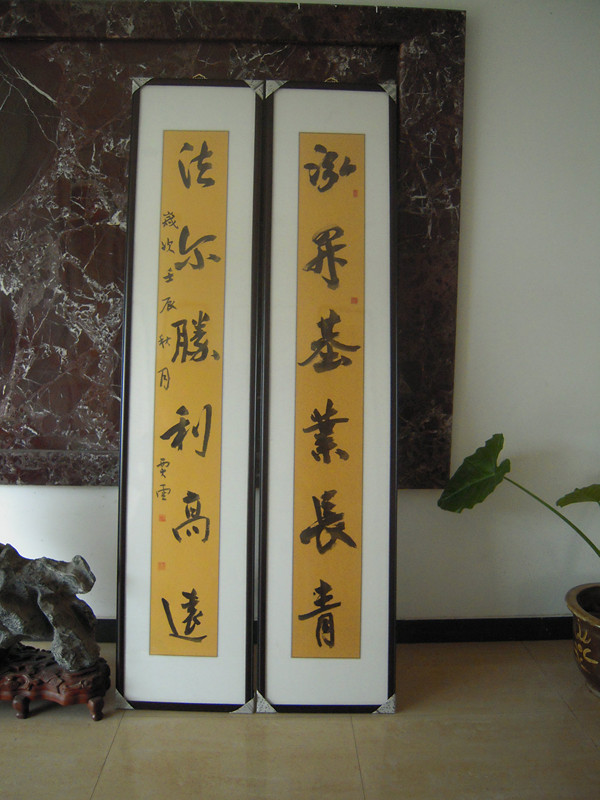 泓升基業長青
法尔勝利高遠
歲次壬辰秋月
賈雲